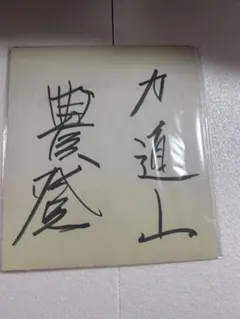 力道山
豊登